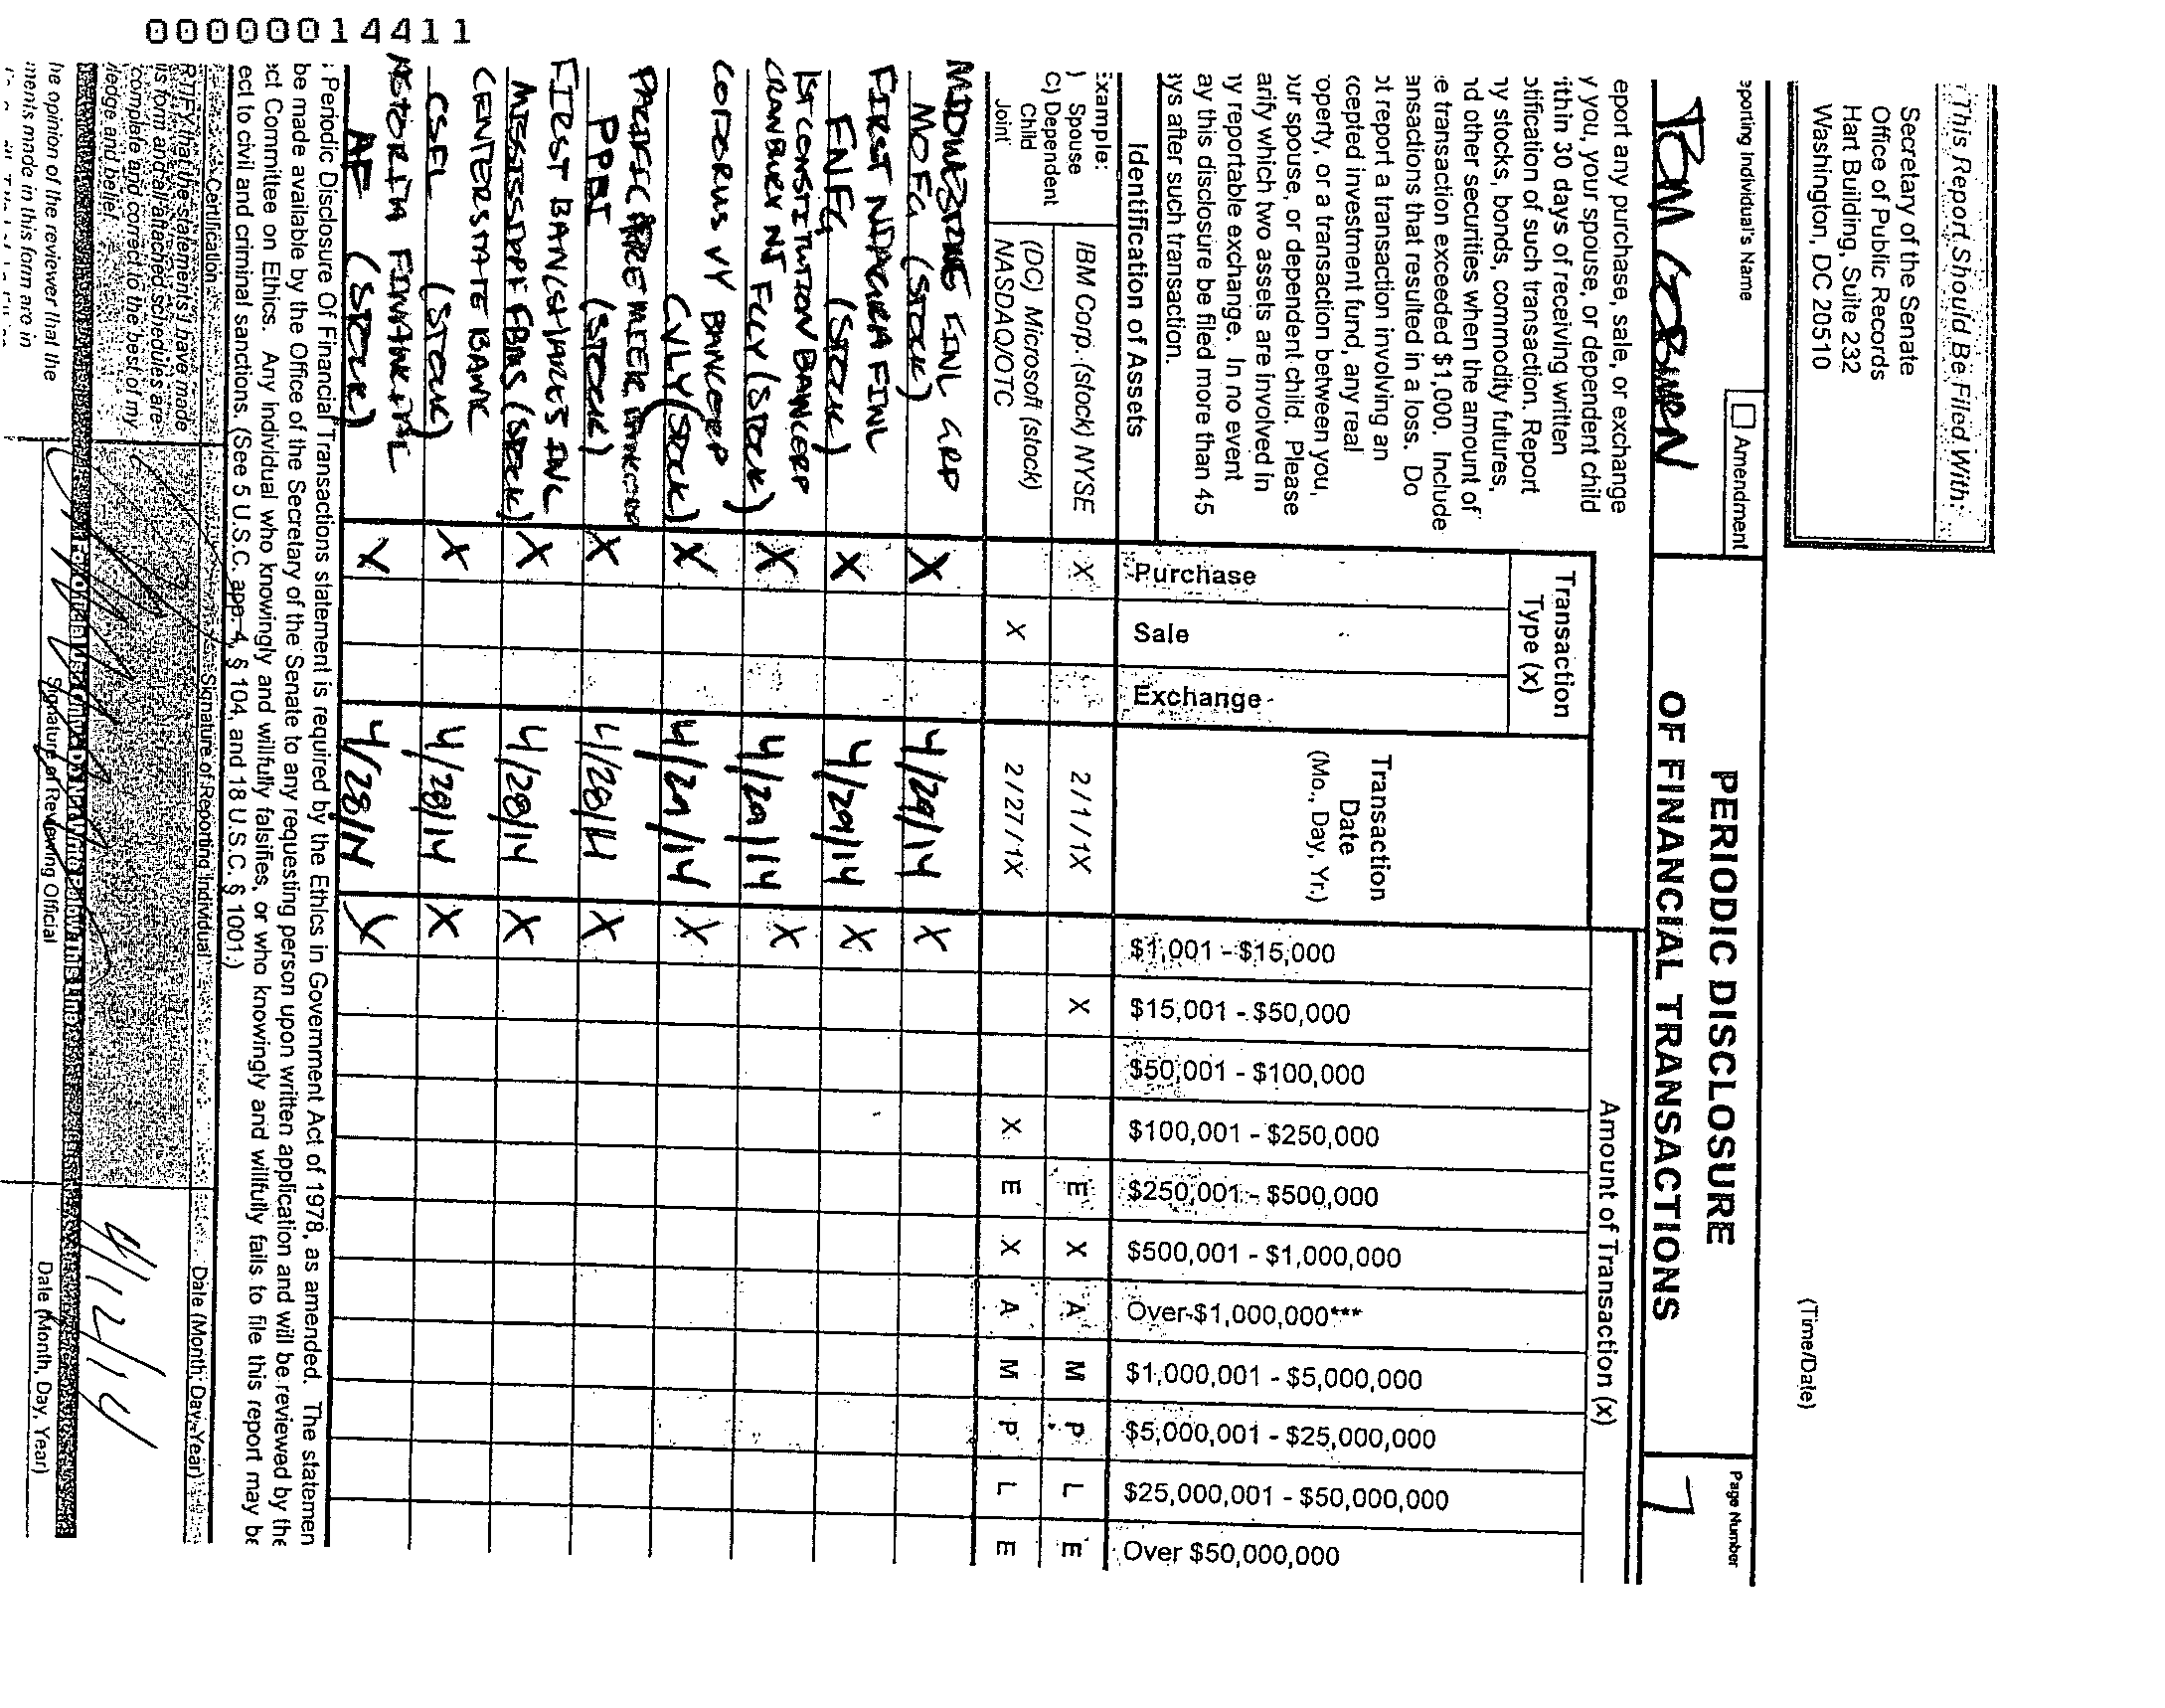 This Report Should Be Filed With:
Secretary of the Senate
Office of Public Records
Hart Building, Suite 232
Washington, DC 20510
(Time/Date)
eporting Individual's Name
Amendment
PERIODIC DISCLOSURE
OF FINANCIAL TRANSACTIONS
Page Number
7
TOM COBURN
eport any purchase, sale, or exchange
y you, your spouse, or dependent child
ithin 30 days of receiving written
otification of such transaction. Report
ny stocks, bonds, commodity futures,
nd other securities when the amount of
e transaction exceeded $1,000. Include
ansactions that resulted in a loss. Do
ot report a transaction involving an
xcepted investment fund, any real
operty, or a transaction between you,
our spouse, or dependent child. Please
arify which two assets are involved in
ny reportable exchange. In no event
ay this disclosure be filed more than 45
ays after such transaction.
Identification of Assets
Transaction
Type (x)
Purchase
Sale
Exchange
Transaction
Date
(Mo., Day, Yr.)
Amount of Transaction (x)
$1,001 - $15,000
$15,001 - $50,000
$50,001 - $100,000
$100,001 - $250,000
$250,001 - $500,000
$500,001 - $1,000,000
Over $1,000,000***
$1,000,001 - $5,000,000
$5,000,001 - $25,000,000
$25,000,001 - $50,000,000
Over $50,000,000
Example:
) Spouse
C) Dependent
Child
Joint
IBM Corp. (stock) NYSE X 2/1/1X X E X A M P L E
(DC) Microsoft (stock)
NASDAQ/OTC X 2/27/1X X E X A M P L E
MIDWESTONE FINL GRP
MOFG (STOCK) X 4/29/14 X
FIRST NIAGARA FINL
FNFG (STOCK) X 4/29/14 X
1ST CONSTITUTION BANCORP
CRANBURY NJ FCCY (STOCK) X 4/29/14 X
CODORUS VY BANCORP
CVLY (STOCK) X 4/29/14 X
PACIFIC PREMIER
PPBI (STOCK) X 4/28/14 X
FIRST BANCSHARES INC
MISSISSIPPI FBMS (STOCK) X 4/28/14 X
CENTERSTATE BANK
CSFL (STOCK) X 4/28/14 X
ASTORIA FINANCIAL
AF (STOCK) X 4/28/14 X
: Periodic Disclosure Of Financial Transactions statement is required by the Ethics in Government Act of 1978, as amended. The statemen
be made available by the Office of the Secretary of the Senate to any requesting person upon written application and will be reviewed by the
ect Committee on Ethics. Any Individual who knowingly and willfully falsifies, or who knowingly and willfully fails to file this report may be
ect to civil and criminal sanctions. (See 5 U.S.C. app. 4, § 104, and 18 U.S.C. § 1001.)
Certification
Signature of Reporting Individual
Date (Month, Day, Year)
RTIFY that the statements I have made
is form and all attached schedules are
complete and correct to the best of my
ledge and belief.
he opinion of the reviewer that the
ments made in this form are in
Signature of Reviewing Official
Date (Month, Day, Year)
00000014411